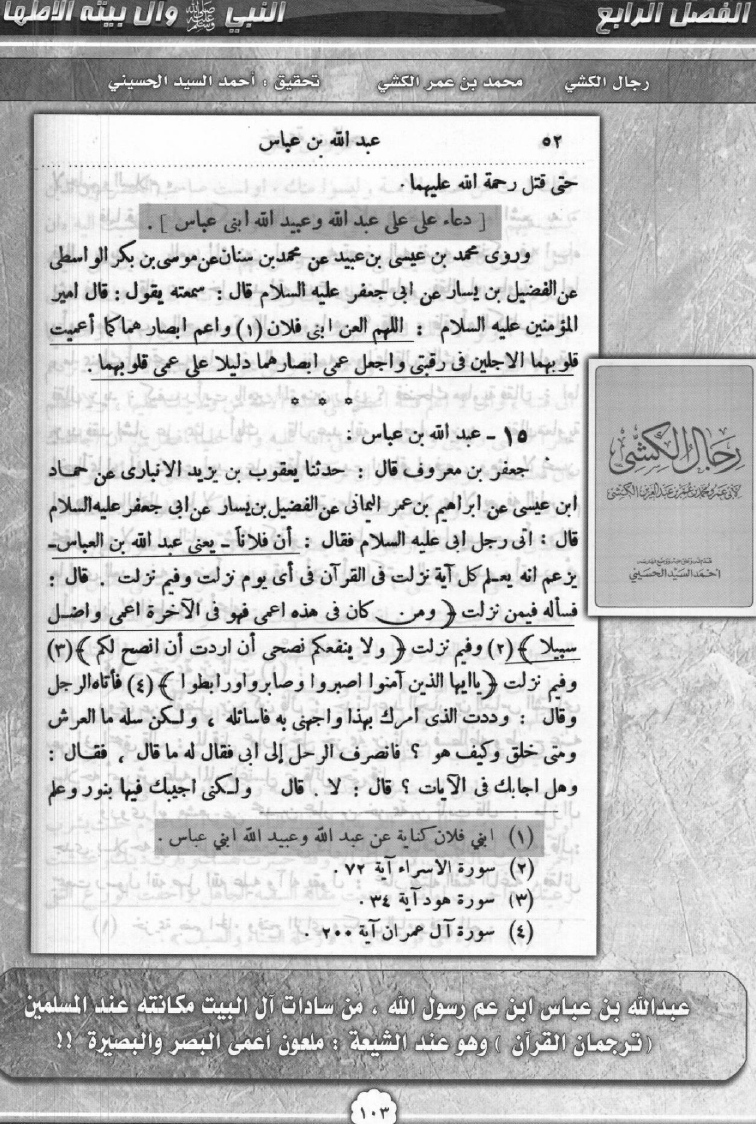 الفصل الرابع
النبي ﷺ وآل بيته الأطها
رجال الكشي محمد بن عمر الكشي تحقيق : أحمد السيد الحسيني
٥٢ عبد الله بن عباس
حتى قتل رحمة الله عليهما .
[ دعاء على على عبد الله وعبيد الله ابنى عباس ] .
وروى محمد بن عيسى بن عبيد عن محمد بن سنان عن موسى بن بكر الواسطى
عن الفضيل بن يسار عن ابى جعفر عليه السلام قال : سمعته يقول : قال امير
المؤمنين عليه السلام : اللهم العن ابنى فلان (١) واعم ابصارهما كما أعميت
قلوبهما الاجلين فى رقبتى واجعل عمى ابصارهما دليلا على عمى قلوبهما .
* * *
١٥ - عبد الله بن عباس :
جعفر بن معروف قال : حدثنا يعقوب بن يزيد الانبارى عن حماد
ابن عيسى عن ابراهيم بن عمر اليمانى عن الفضيل بن يسار عن ابى جعفر عليه السلام
قال : اتى رجل ابى عليه السلام فقال : أن فلاناً - يعنى عبد الله بن العباس -
يزعم انه يعلم كل آية نزلت فى القرآن فى أى يوم نزلت وفيم نزلت . قال :
فسأله فيمن نزلت ﴿ ومن كان فى هذه اعمى فهو فى الآخرة اعمى واضل
سبيلا ﴾ (٢) وفيم نزلت ﴿ ولا ينفعكم نصحى أن اردت أن انصح لكم ﴾ (٣)
وفيم نزلت ﴿ ياايها الذين آمنوا اصبروا وصابروا ورابطوا ﴾ (٤) فأتاه الرجل
وقال : وددت الذى امرك بهذا واجهنى به فاسائله ، ولكن سله ما العرش
ومتى خلق وكيف هو ؟ فانصرف الرحل إلى ابى فقال له ما قال ، فقال :
وهل اجابك فى الآيات ؟ قال : لا . قال ولكنى اجيبك فيها بنور وعلم
(١) ابني فلان كناية عن عبد الله وعبيد الله ابني عباس .
(٢) سورة الاسراء آية ٧٢ .
(٣) سورة هود آية ٣٤ .
(٤) سورة آل عمران آية ٢٠٠ .
رجال الكشي
أحمد السيد الحسيني
عبدالله بن عباس ابن عم رسول الله ، من سادات آل البيت مكانته عند المسلمين
( ترجمان القرآن ) وهو عند الشيعة : ملعون أعمى البصر والبصيرة !!
١٠٣